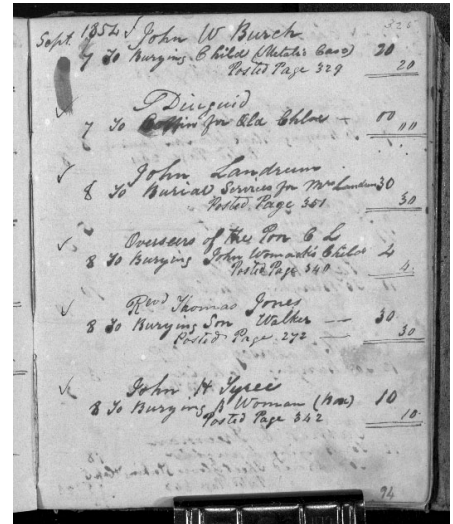 326
Sept. 1854 John W Burch
7 To Burying Child (Metalic Case) 20
Posted Page 329 20
Diuguid
7 To Coffin for Old Chloe — 00
00
John Landrum
8 To Burial Services for Mrs Landrum 30
Posted Page 301 30
Overseers of the Poor C L
8 To Burying John Womack's Child 4
Posted Page 340 4
Revd Thomas Jones
8 To Burying Son Walker — 30
Posted Page 272 — 30
John H Tyree
8 To Burying B Woman 10
Posted Page 342 10
94